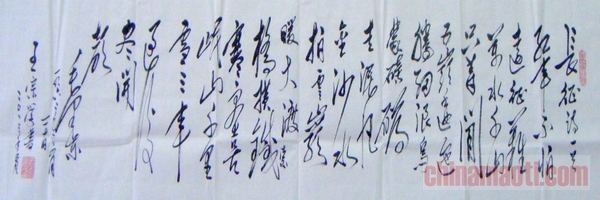 长征诗一首
红军不怕
远征难
万水千山
只等闲
五岭逶迤
腾细浪乌
蒙磅礴
走泥丸
金沙水
拍云崖
暖大渡
桥横铁索
寒更喜
岷山千里
雪三军
过后
尽开
颜
毛泽东
chinamaoti.com